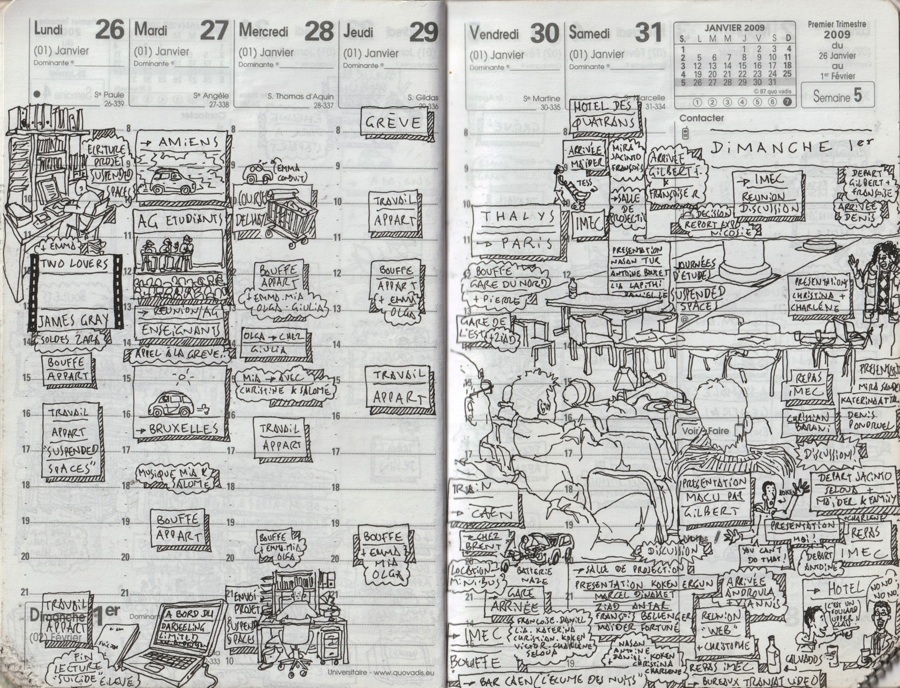 Lundi 26
(01) Janvier
Dominante
Ste Paule
26-339
8
ECRITURE
PROJET
SUSPENDED
SPACES
↓ EMMA
TWO LOVERS
JAMES GRAY
SOLDES ZARA
BOUFFE
APPART
TRAVAIL
APPART
"SUSPENDED
SPACES"
TRAVAIL
APPART
Mardi 27
(01) Janvier
Dominante
Ste Angèle
27-338
→ AMIENS
AG ETUDIANTS
→ REUNION/AG
ENSEIGNANTS
APPEL À LA GREVE!
→ BRUXELLES
MUSIQUE MIA &
SALOME
BOUFFE
APPART
Mercredi 28
(01) Janvier
Dominante
S. Thomas d'Aquin
28-337
EMMA
CONDUIT
COURSES
DELHAIZE
BOUFFE
APPART
+ EMMA.MIA
OLGA - GIULIA
OLGA → CHEZ
GIULIA
MIA → AVEC
CHRISTINE & SALOME
TRAVAIL
APPART
BOUFFE
+ EMMA.MIA
OLGA
ENVOI
PROJET
SUSPENDED
SPACES
Jeudi 29
(01) Janvier
Dominante
S. Gildas
GRÈVE
TRAVAIL
APPART
BOUFFE
APPART
+ EMMA
OLGA
TRAVAIL
APPART
BOUFFE
+ EMMA
MIA
OLGA
Dimanche 1er
(02) Février
FIN
LECTURE
"SUICIDE" E.LEVÉ
A BORD DU
DARJEELING
LIMITED
Universitaire - www.quovadis.eu
Vendredi 30
(01) Janvier
Dominante
Ste Martine
30-335
THALYS
→ PARIS
BOUFFE
GARE DU NORD
+ PIERRE
GARE DE
L'EST + ZIAD
TRAIN
→ CAEN
→ CHEZ
BRENT
BATTERIE
NAZE
LOCATION
MINIBUS
GARE
ARRIVÉE
IMEC
FRANÇOISE. DANIEL
LIA. KATERINA
CHRISTIAN. KOKEN
VICTOR. CHARLÈNE
SELOUA
BOUFFE
→ BAR CAEN (L'ECUME DES NUITS)
Samedi 31
(01) Janvier
Dominante
Marcelle
31-334
HOTEL DES
QUATRANS
ARRIVÉE
MAÏDER
IMEC
MIRA
JACINTO
FRANÇOIS
→ SALLE
DE
PROJECTION
PRESENTATION
NASAN TUR
ANTOINE BOUTET
LIA LAPITHI
DANIELLE
ARRIVÉE
GILBERT +
FRANÇOISE R
DECISION
REPORT EXPO
NICOSIE
JOURNÉES
D'ETUDE
SUSPENDED
SPACE
Voir / Faire
PRESENTATION
MACU PAR
GILBERT
DISCUSSION
→ SALLE DE PROJECTION
PRESENTATION KOKEN ERGUN
MARCEL DINAHET
ZIAD ANTAR
FRANÇOIS BELLENGER
MAÏDER FORTUNÉ
+ NASAN
ANTOINE
DANIEL. KOKEN
CHRISTINA
CHARLÈNE
JANVIER 2009
S. L M M J V S D
1 1 2 3 4
2 5 6 7 8 9 10 11
3 12 13 14 15 16 17 18
4 19 20 21 22 23 24 25
5 26 27 28 29 30 31
© 07 quo vadis
1 2 3 4 5 6 7
Premier Trimestre
2009
du
26 Janvier
au
1er Février
Semaine 5
Contacter
DIMANCHE 1er
→ IMEC
REUNION
DISCUSSION
DEPART
GILBERT +
FRANÇOISE
ARRIVÉE
DENIS
PRESENTATION
CHRISTINA +
CHARLÈNE
REPAS
IMEC
CHRISTIAN
BARANI
MIRA SANDERS
KATERINA ATTALIDOU
DENIS
PONDRUEL
DISCUSSION!
DEPART JACINTO
SELOUA +
MAÏDER & FAMILY
PRESENTATION
MOI!
YOU CAN'T
DO THAT!
DEPART
ANTOINE
REPAS
IMEC
ARRIVÉE
ANDROULA
& YIANNIS
→ HOTEL
C'EST UN
NO NO NO!
REUNION
"WEB"
+ CHRISTOPHE
REPAS IMEC
CALVADOS
→ BUREAUX TRANSAT VIDEO